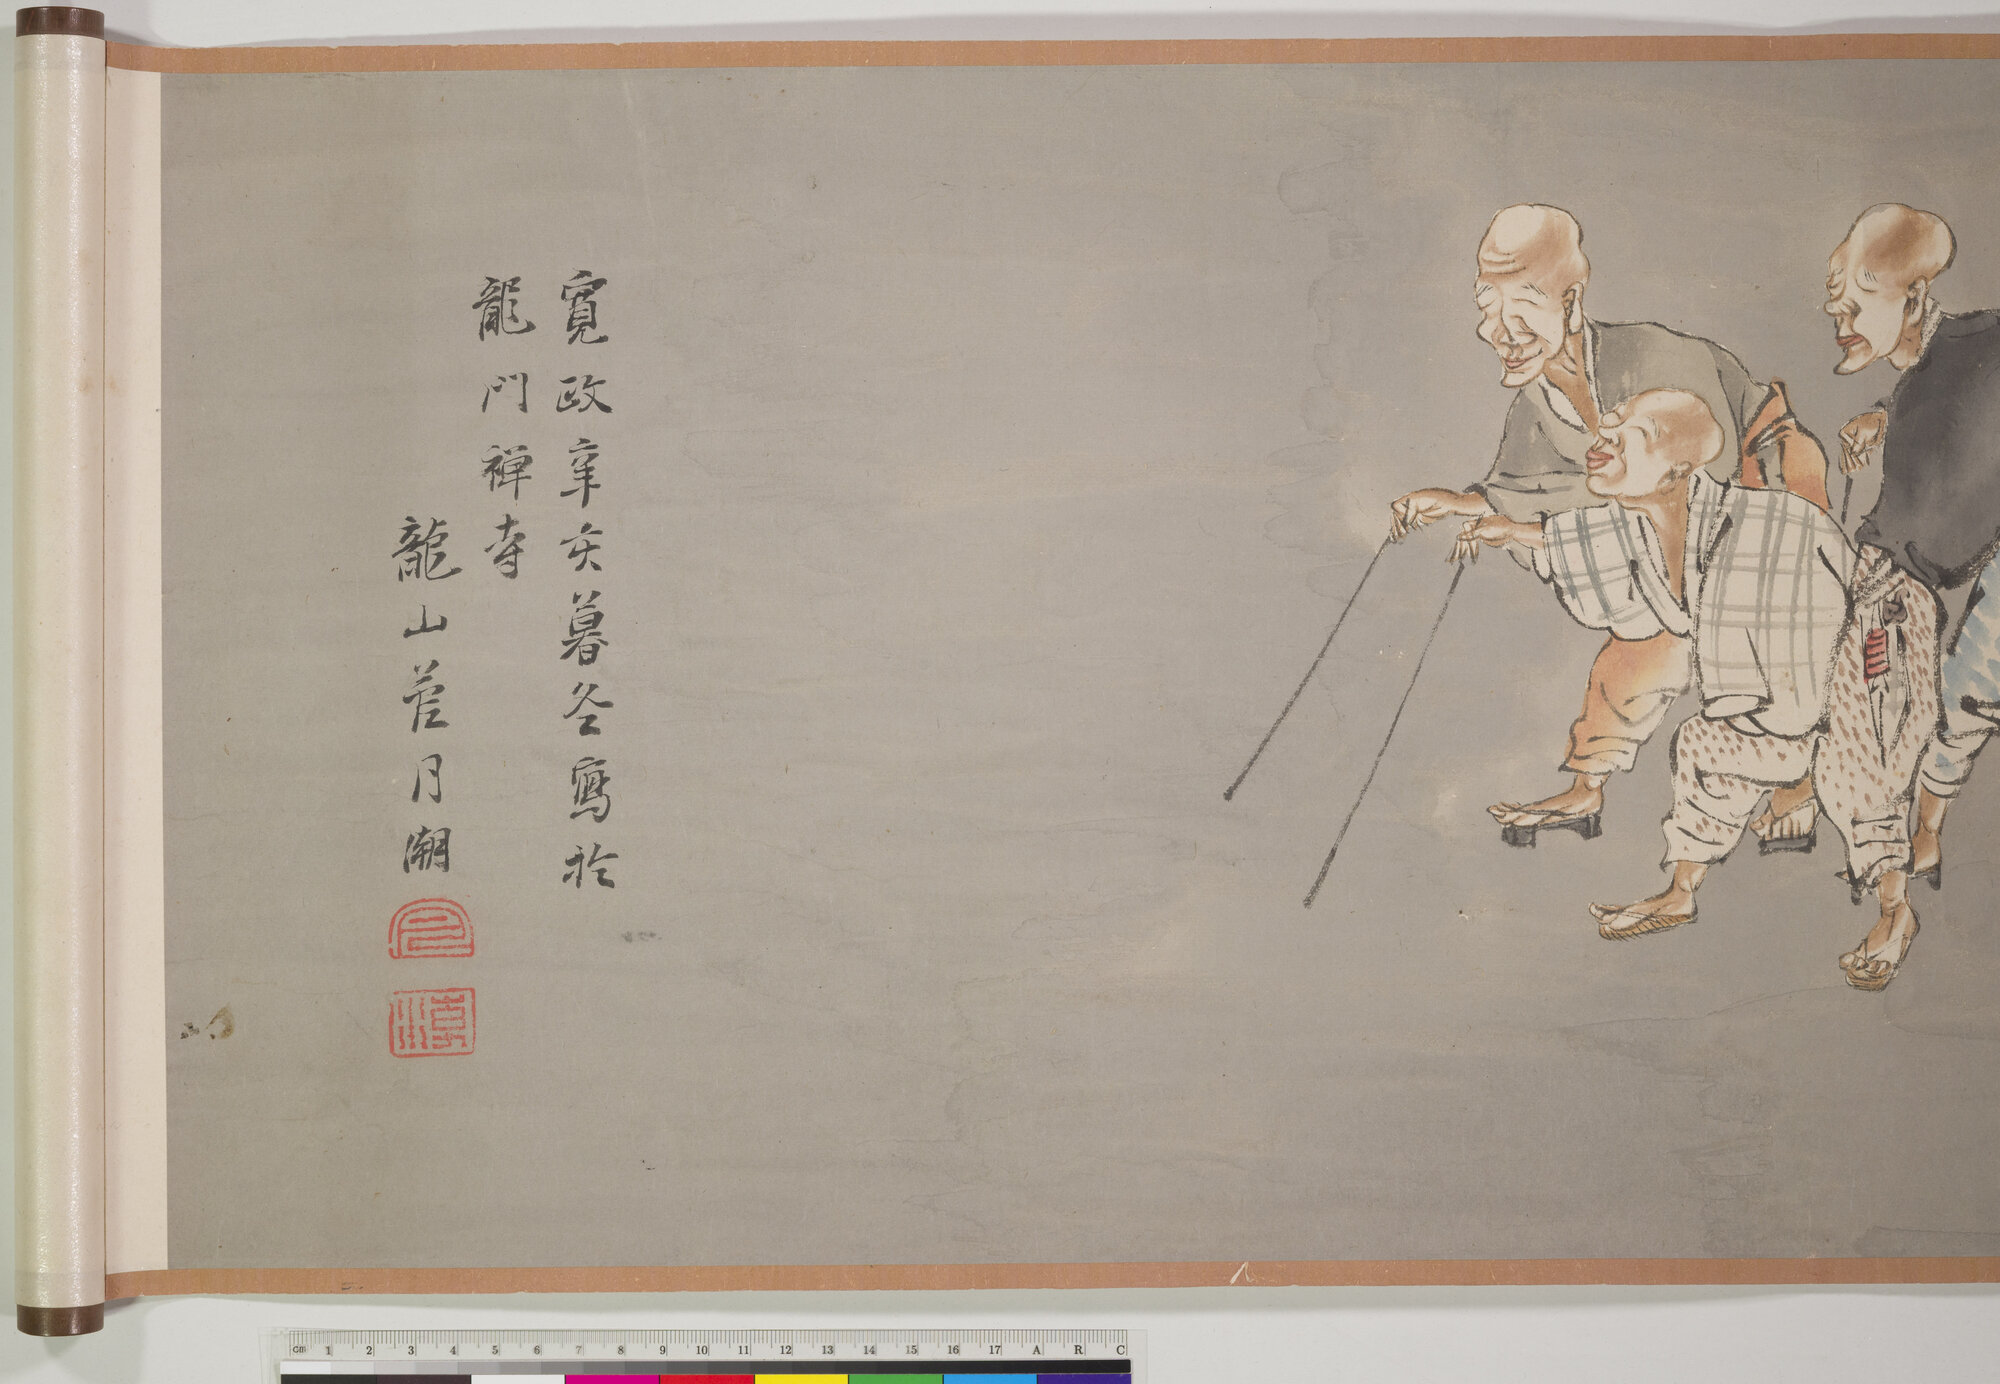 寛政辛亥暮冬寫於
龍門禅寺
龍山菅月潮
cm 1 2 3 4 5 6 7 8 9 10 11 12 13 14 15 16 17 A R C